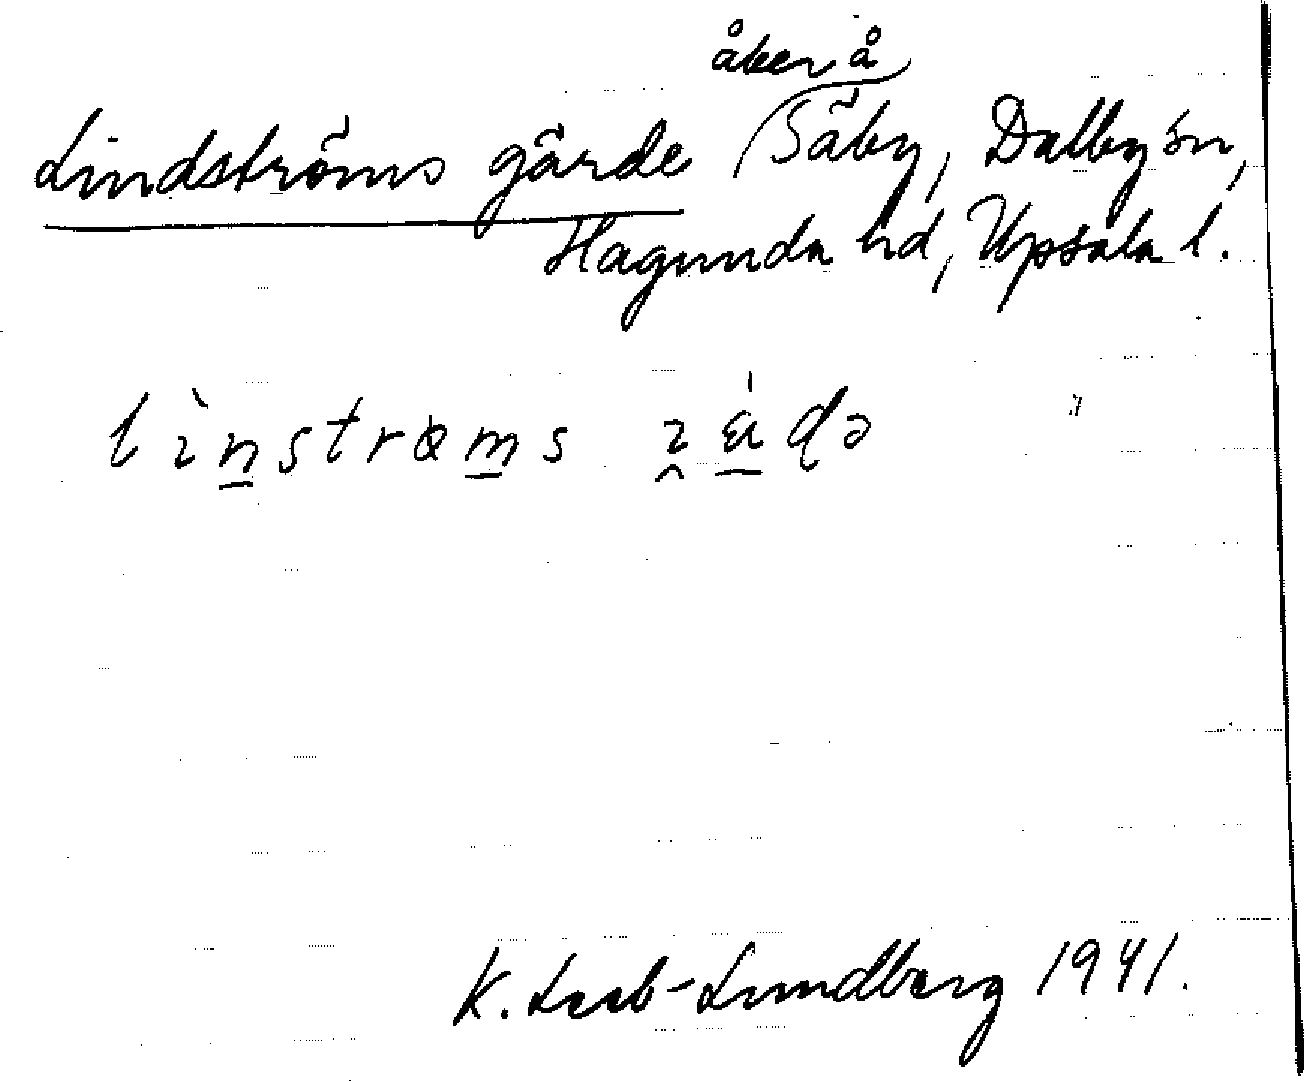 åker å
Lindströms gärde Säby, Dalby sn,
Hagunda hd, Upsala l.
lìn̲strɵm̲s
K. Leeb-Lundberg 1941.